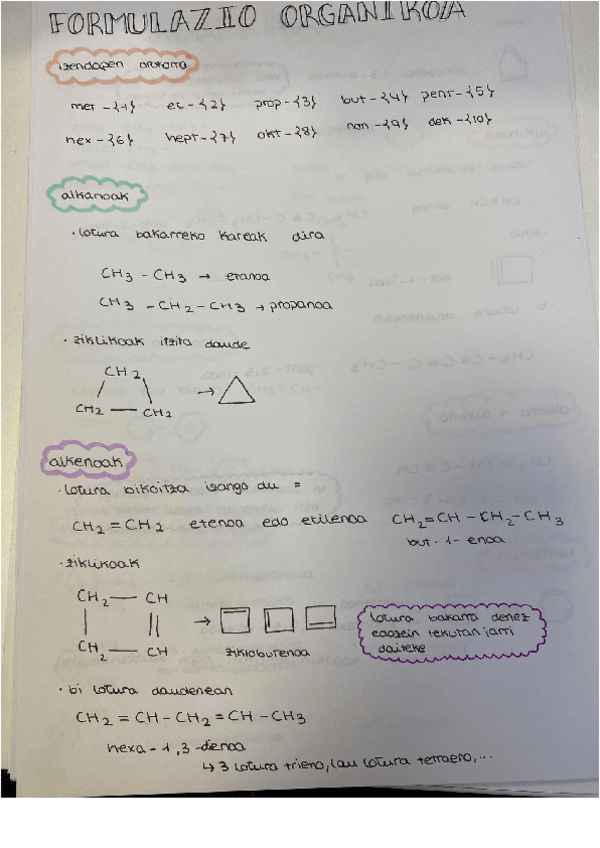 FORMULAZIO ORGANIKOA
izendapen arrarra
met -{1} et -{2} prop -{3} but -{4} pent -{5}
hex -{6} hept -{7} okt -{8} non -{9} dek -{10}
alkanoak
· lotura bakarreko kateak dira
CH3 - CH3 → etanoa
CH3 - CH2 - CH3 → propanoa
· ziklikoak itxita daude
CH2
CH2 — CH2 →
alkenoak
· lotura bikoitza izango du =
CH2 = CH2 etenoa edo etilenoa CH2=CH - CH2 - CH3
but - 1 - enoa
· ziklikoak
CH2 — CH
CH2 — CH →
ziklobutenoa
lotura bakarra denez
edozein lekutan jarri
daiteke
· bi lotura daudenean
CH2 = CH - CH2 = CH - CH3
hexa - 1,3 - denoa
↳ 3 lotura trieno, lau lotura tetraeno,...